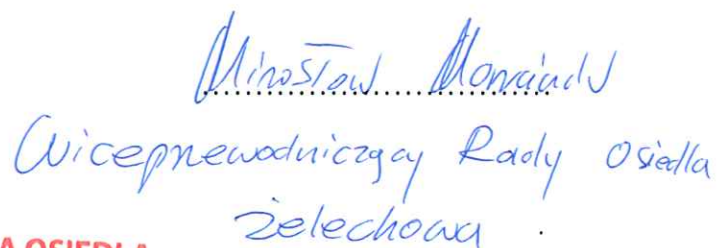 Mirosław
Wiceprzewodniczący Rady Osiedla
Żelechowa.
A OSIEDLA